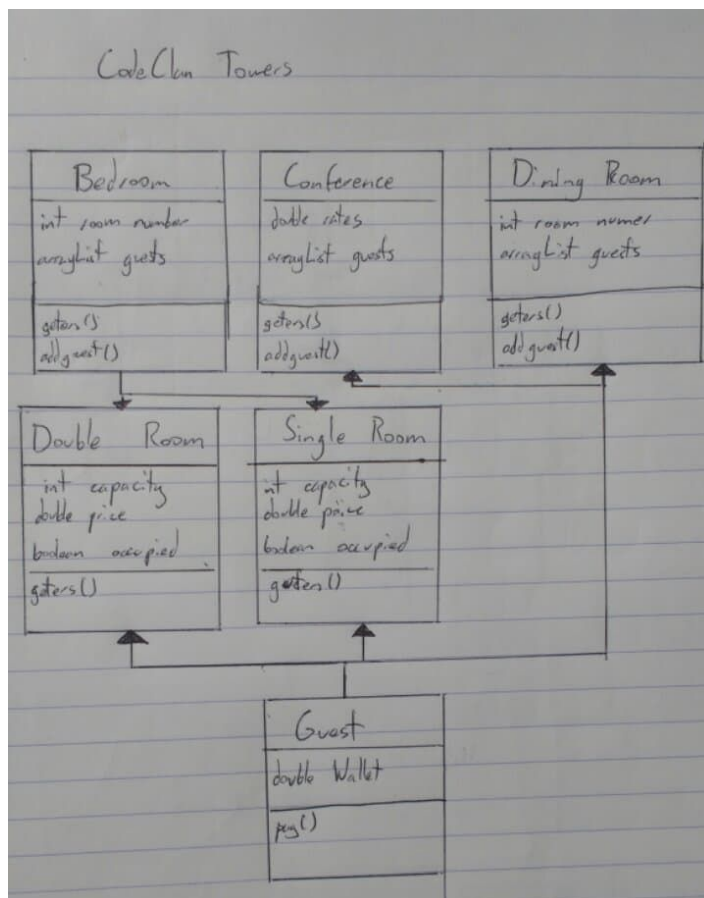 CodeClan Towers
Bedroom
int room number
arrayList guests
geters()
addguest()
Conference
double rates
arrayList guests
geters()
addguest()
Dining Room
int room numer
arrayList guests
geters()
addguest()
Double Room
int capacity
double price
boolean occupied
geters()
Single Room
int capacity
double price
boolean occupied
geters()
Guest
double Wallet
pay()